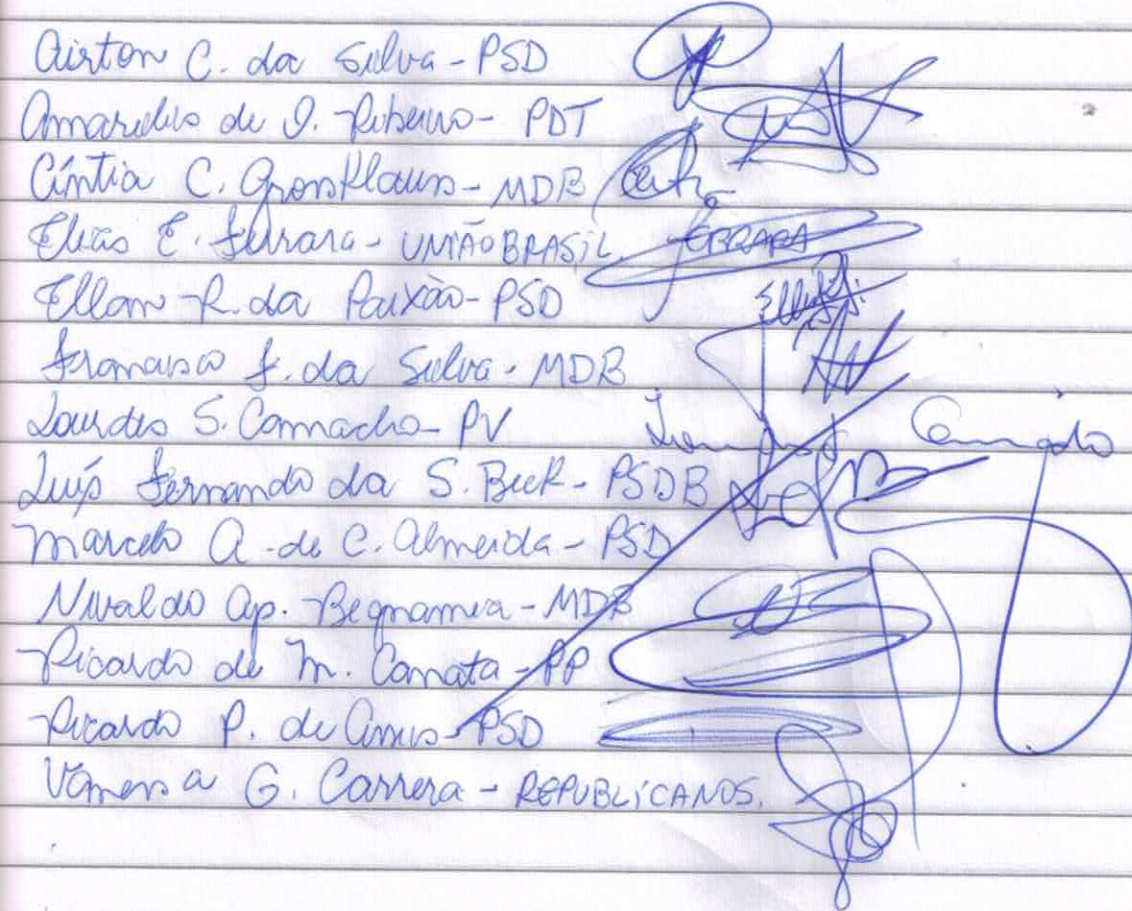 Airton C. da Silva - PSD
Amarildo de O. Ribeiro - PDT
Cíntia C. Gronsklaus - MDB
Elias E. Ferrara - UNIÃO BRASIL. FERRARA
Ellan R. da Paixão - PSD
Francisco F. da Silva - MDB
Lourdes S. Camacho - PV
Luís Fernando da S. Beck - PSDB
Marcelo A. de C. Almeida - PSD
Nivaldo Ap. Begnamia - MDB
Ricardo de M. Canata - PP
Ricardo P. de - PSD
Vanessa G. Carrera - REPUBLICANOS.